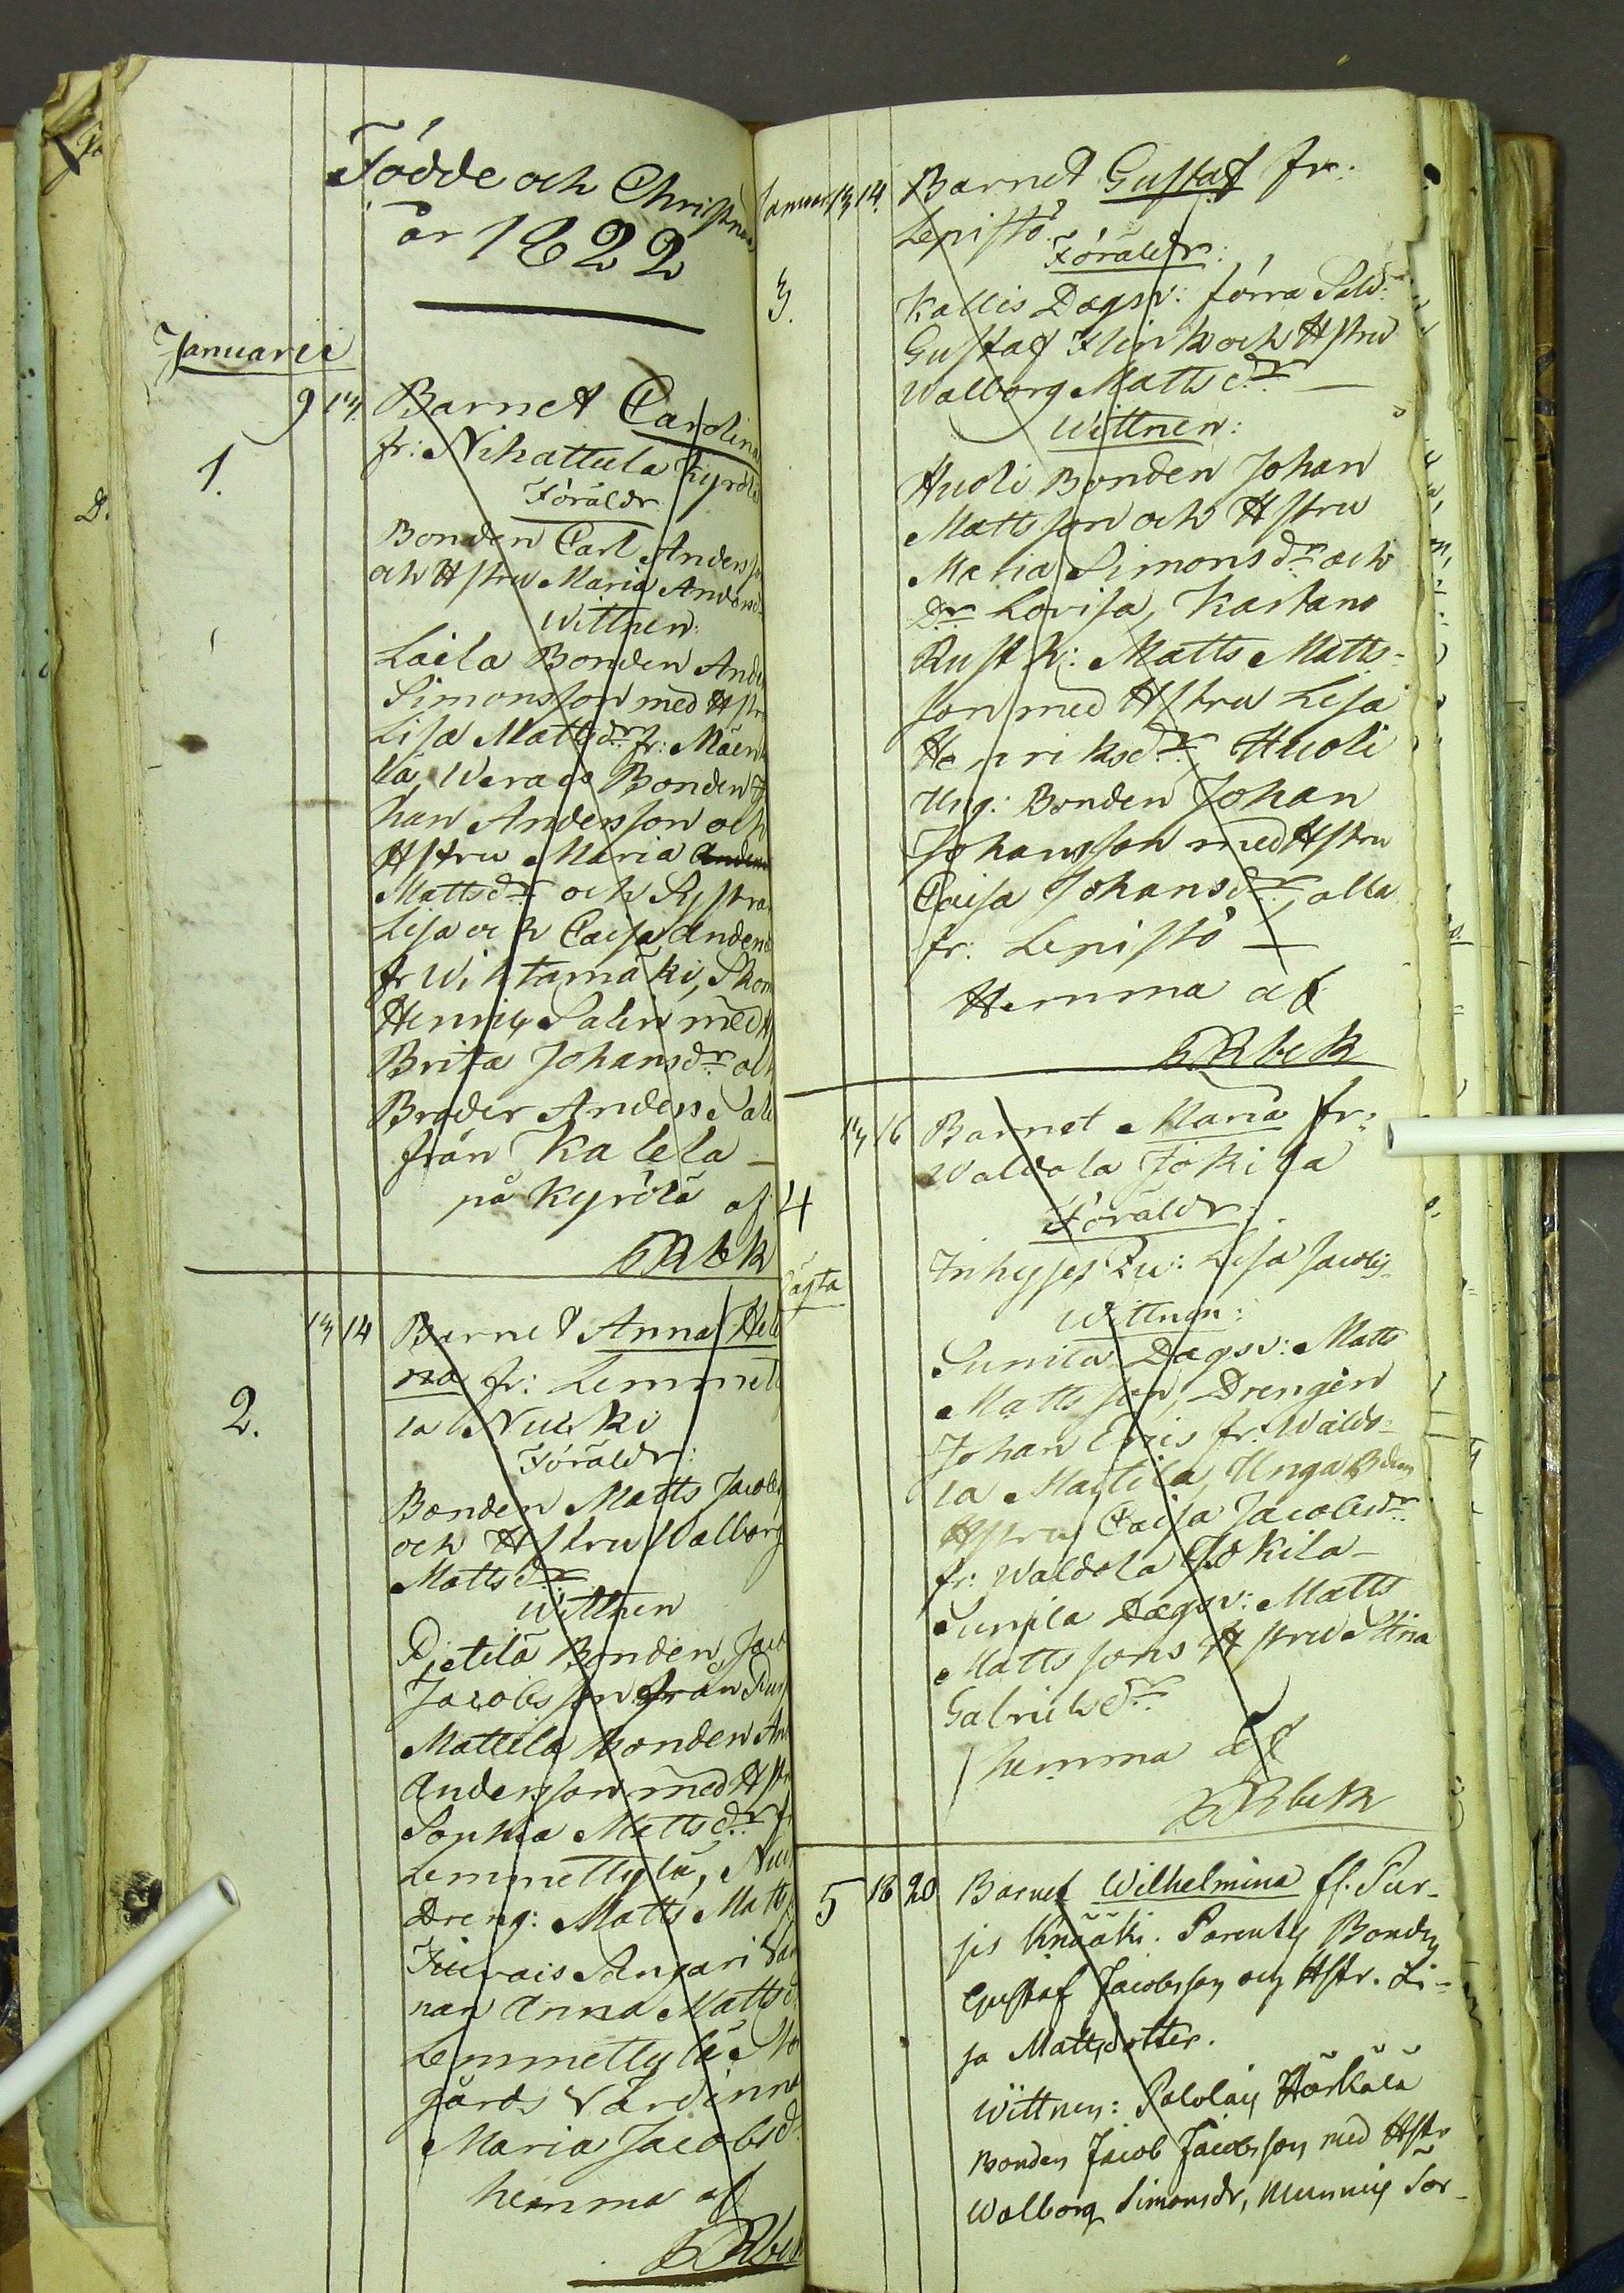 Födde och Christnad
år 1822
Januarii
9 13 Barnet Carolina
1.
fr: Nihattula Kyrölä
Föräldr
Bonden Carl Andersson
och Hstru Maria Andersd
Wittnen:
Laila Bonden Ande
Simonsson med Hstr
Lisa Mattsdr fr: Mäen
Bonden Jo
han Andersson och
Hstru Maria
Mattsdr och Systra
Lisa och Caisa Andersd
fr Wihtamäki, Skom
Henric Salin med H
Brita Johansdr och
Broder Anders Sali
från Kalela
på Kyrölä af
13 14 Barnet Anna Hele
2.
na fr: Lemmety
la Nuuki
Föräldr:
Bonden Matts Jacobs
och Hstru Walborg
Mattsdr
Wittnen
Pietilä Bonden Jaco
Jacobsson från
Mattila Bonden An
Andersson med Hstr
Sophia Mattsdr fr
Lemmettylä,
Dreng: Matts Matts
nan Anna Mattsd
Lemmettylä
gårds Värdinna
Maria Jacobsd
hemma af
Januar 13 14 Barnet Gustaf fr:
Lepistö
Föräldr:
3.
Kallis Dagsv: förra Sold:
Gustaf Flink och Hstru
Walborg Mattsdr
Wittnen:
Huoli Bonden Johan
Mattsson och Hstru
Maria Simonsdr och
Dr Lovisa, Kartano
Rusth: Matts Matts-
son med Hstru Lisa
Henriksdr, Huoli
Ung: Bonden Johan
Johansson med Hstru
Caisa Johansdr, alla
fr: Lepistö
Hemma af
13 16 Barnet Maria fr:
Waldola Jokila
4
Föräldr:
Inhyses Lisa Jacobs
Wittnen:
Sunila Dagsv: Matts
Mattsson, Drengen
Johan Eric fr: Waldo-
la Mattila, Unga Bdens
Hstru Caisa Jacobsdr
fr: Waldola Jokila
Sunila Dagsv: Matts
Mattssons Hstru Stina
Gabrielsdr
hemma af
5 18 20 Barnet Wilhelmina fr. Pur-
jis Knääki. Parentes Bonden
Gustaf Jacobsson och Hstr. Li-
sa Mattsdotter.
Wittnen: Palolais Härkälä
Bonden Jacob Jacobsson med Hstr
Walborg Simonsdr,